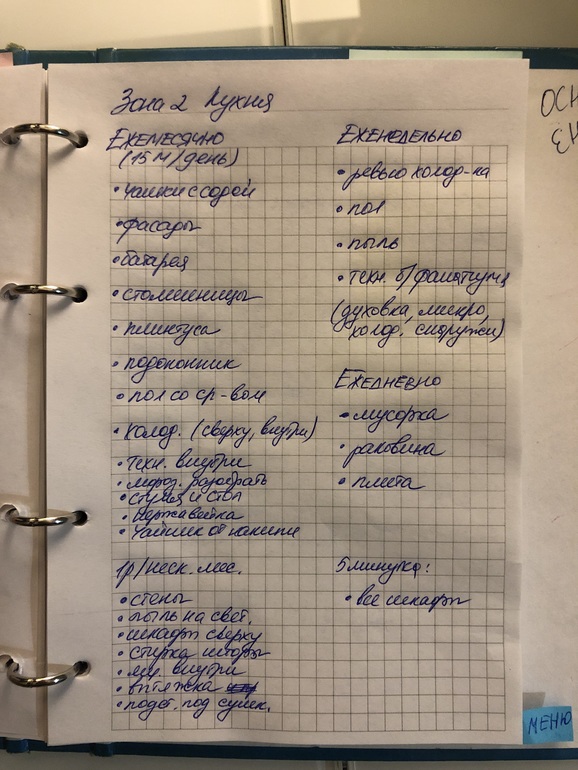 Зона 2 Кухня
ЕЖЕМЕСЯЧНО
(15 м/день)
• чашки с содой
• фасады
• батарея
• столешницы
• плинтуса
• подоконник
• пол со ср-вом
• холод. (сверху, внутри)
• техн. внутри
• мороз. разобрать
• стулья и стол
• нержавейка
• чайник от накипи
1р/неск. мес.
• стены
• пыль на свет.
• шкафы сверху
• стирка шторы
• ящ. внутри
• вытяжка
• подст. под сушк.
ЕЖЕНЕДЕЛЬНО
• ревью холод-ка
• пол
• пыль
• техн. б/фанатизма
(духовка, микро,
холод. снаружи)
ЕЖЕДНЕВНО
• мусорка
• раковина
• плита
5 минутка:
• все шкафы
ОСН
МЕНЮ